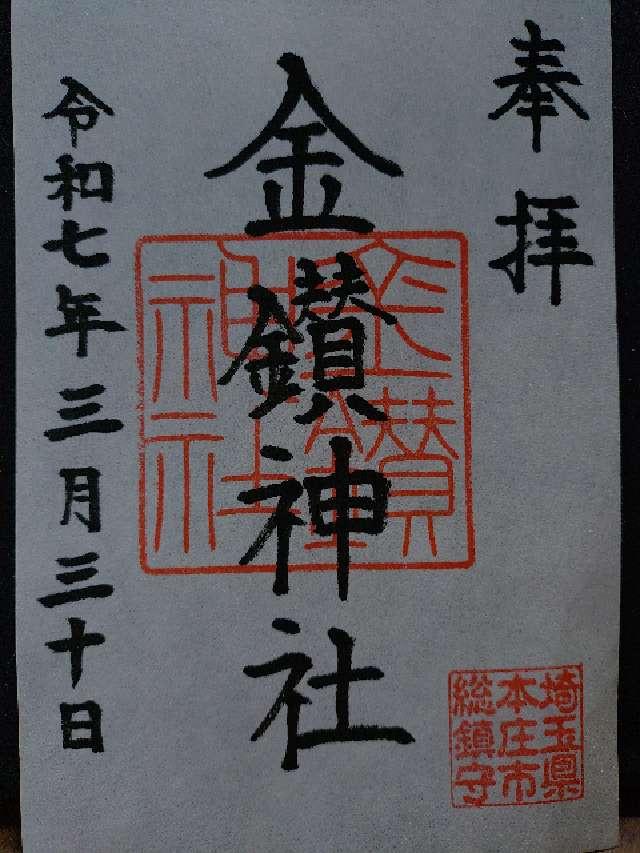 奉拝
金鑚神社
令和七年三月三十日
埼玉県
本庄市
総鎮守